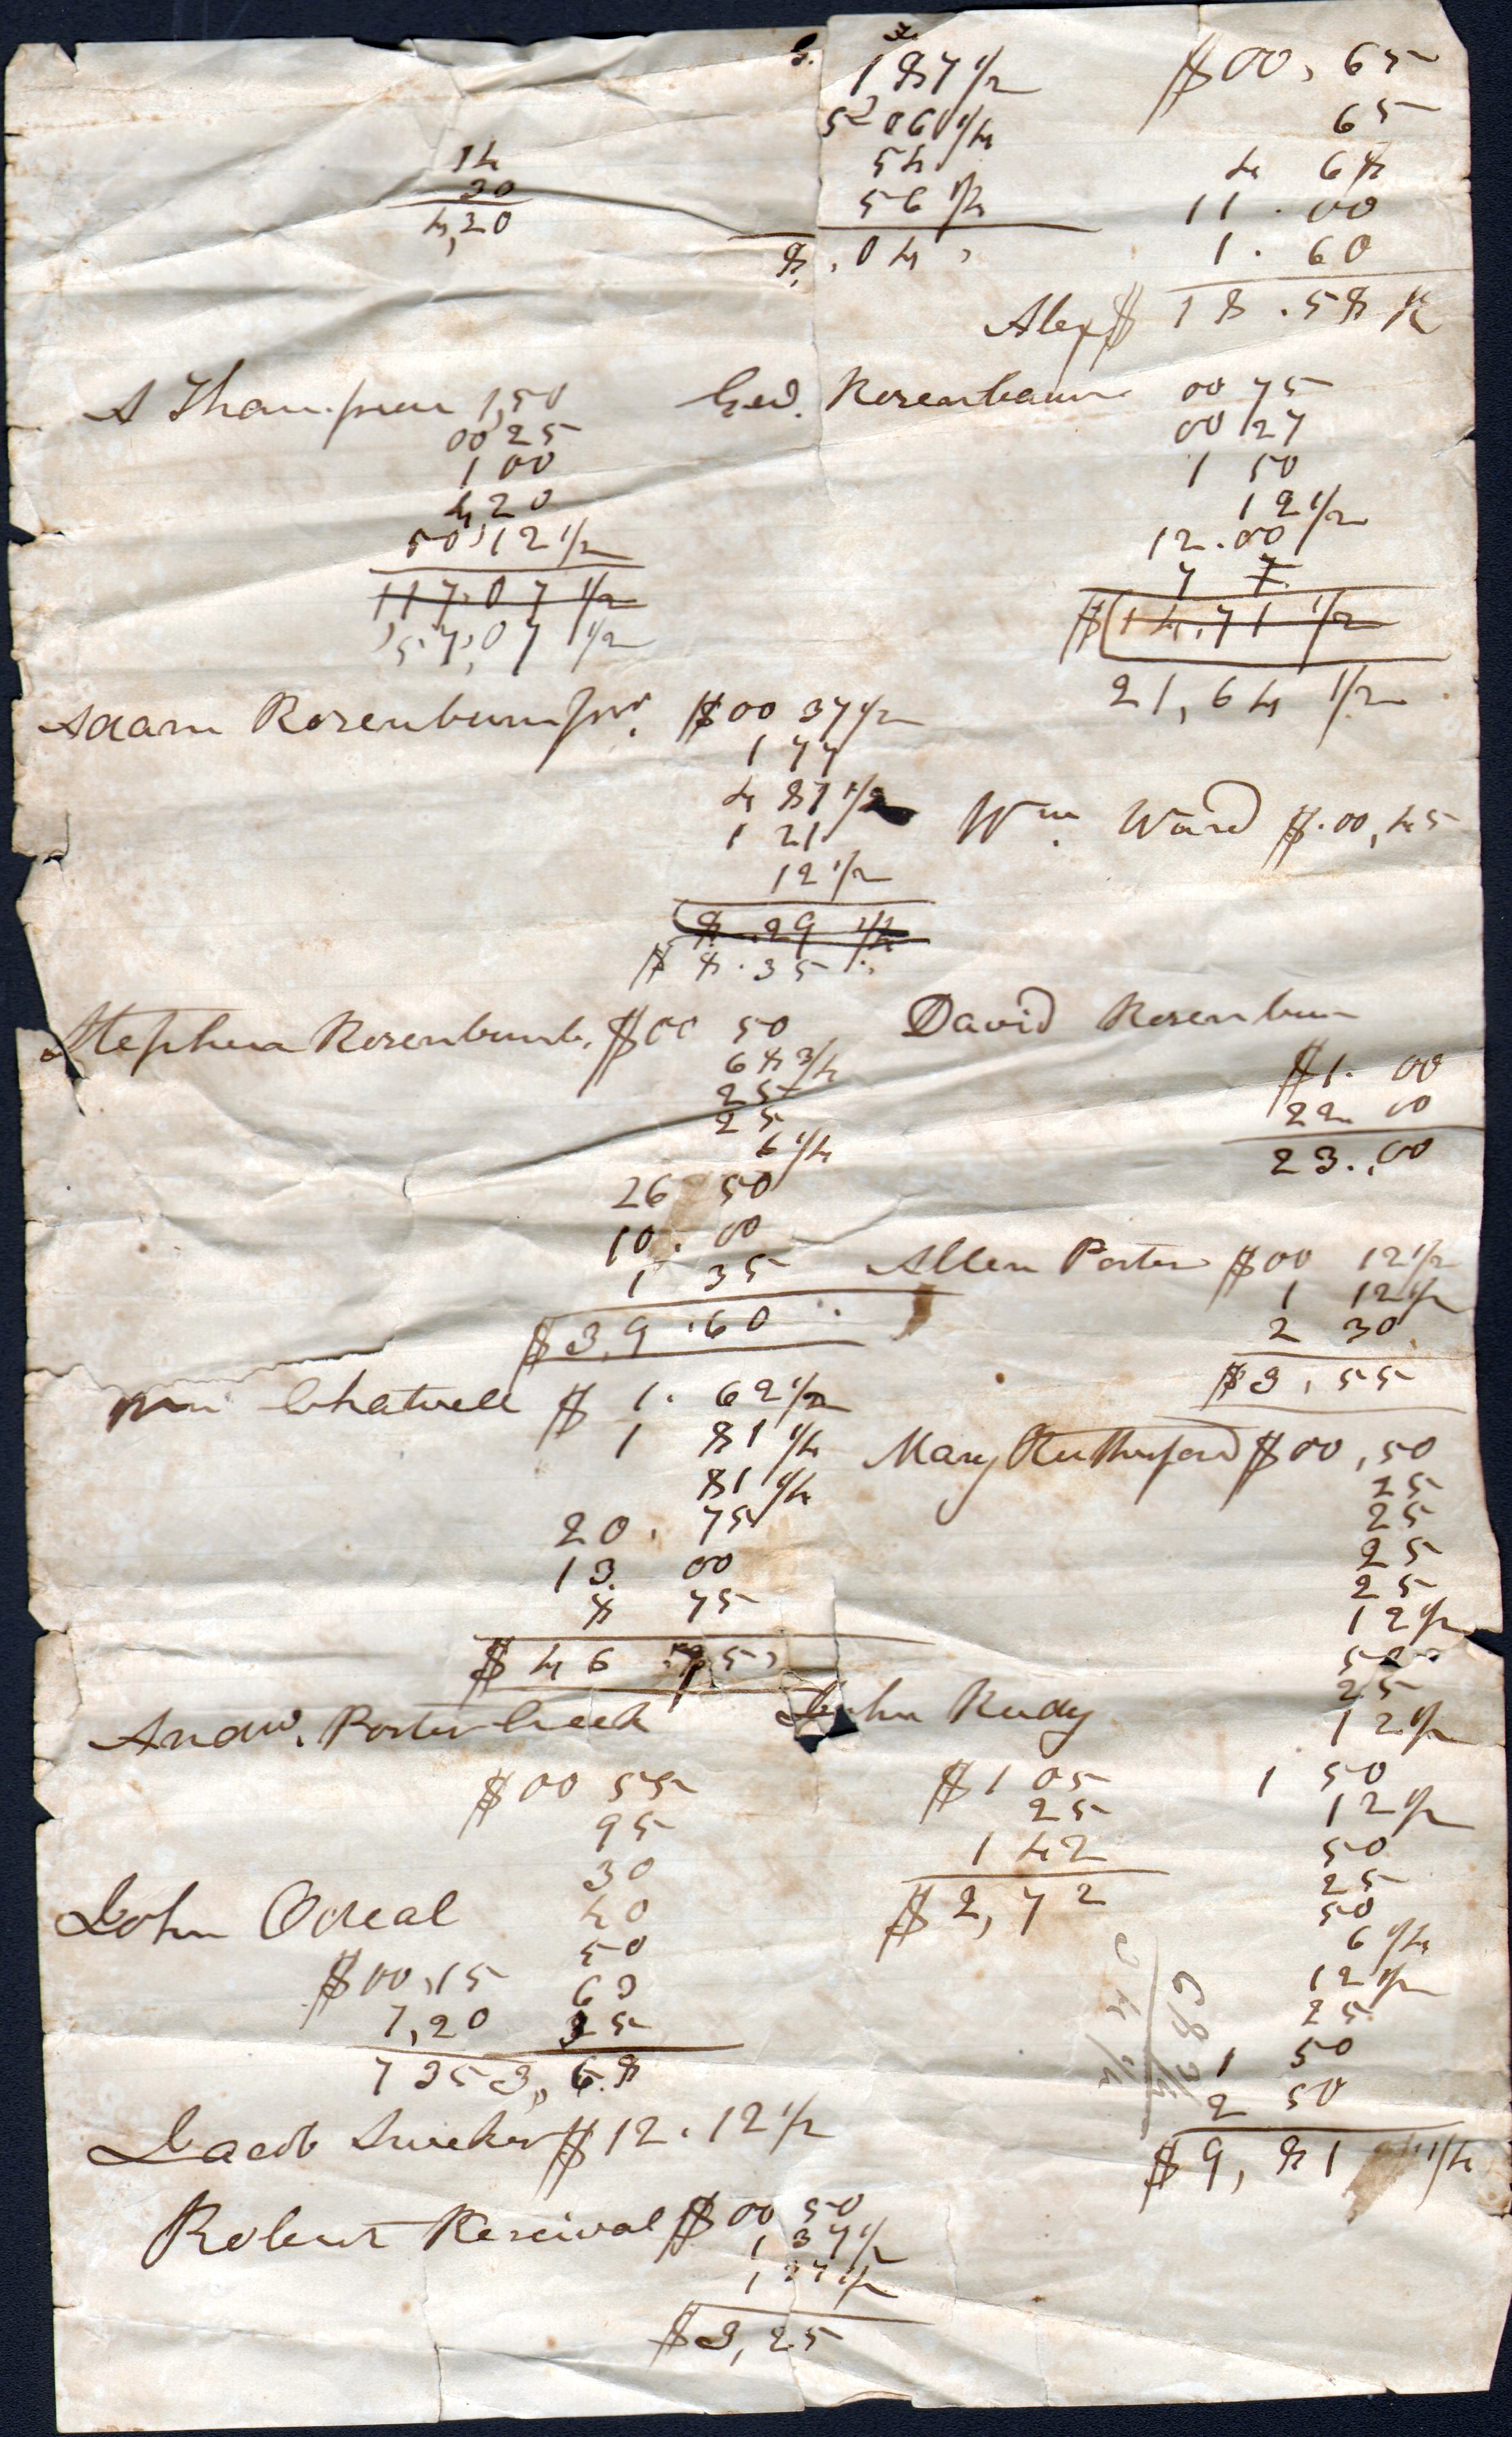 14
30
4,20
1,87 1/2
5 06 1/4
54
56 1/4
8,04
$00,65
65
4 68
11.00
1.60
Alex $18.58
A Thompson 1,50
00 25
1 00
4 20
50,12 1/2
117.07 1/2
57,07 1/2
Geo. Rosenbaum 00 75
00 27
1 50
12 1/2
12.00
7 7
$14.71 1/2
21,64 1/2
Adam Rosenbum Jnr. $00 37 1/2
1 77
4 87 1/2
1 21
12 1/2
8.29 1/4
$8.35
Wm. Ward $.00,45
Stephen Rosenbumb. $00 50
68 3/4
25
25
6 1/4
26 50
10.00
1 35
$39.60
David Rosenbum
$1.00
22 00
23.00
Allen Porter $00 12 1/2
1 12 1/2
2 30
$3,55
Chatwell $1.62 1/2
1 81 1/4
81 1/4
20.75
13.00
8 75
$46
Mary Rutherford $00,50
25
25
25
25
12 1/2
50
25
12 1/2
1 50
12 1/2
50
25
50
6 1/4
12 1/2
25
1 50
2 50
$9,81 1/4
Andw. Porter Creek
$00 55
95
30
40
50
63
35
3,68
John Rudy
$1 05
25
1 42
$2,72
John Oneal
$00,15
7,20
7 35
Jacob Swicker $12.12 1/2
Robert Percival $00 50
1 37 1/2
1 37 1/2
$3,25